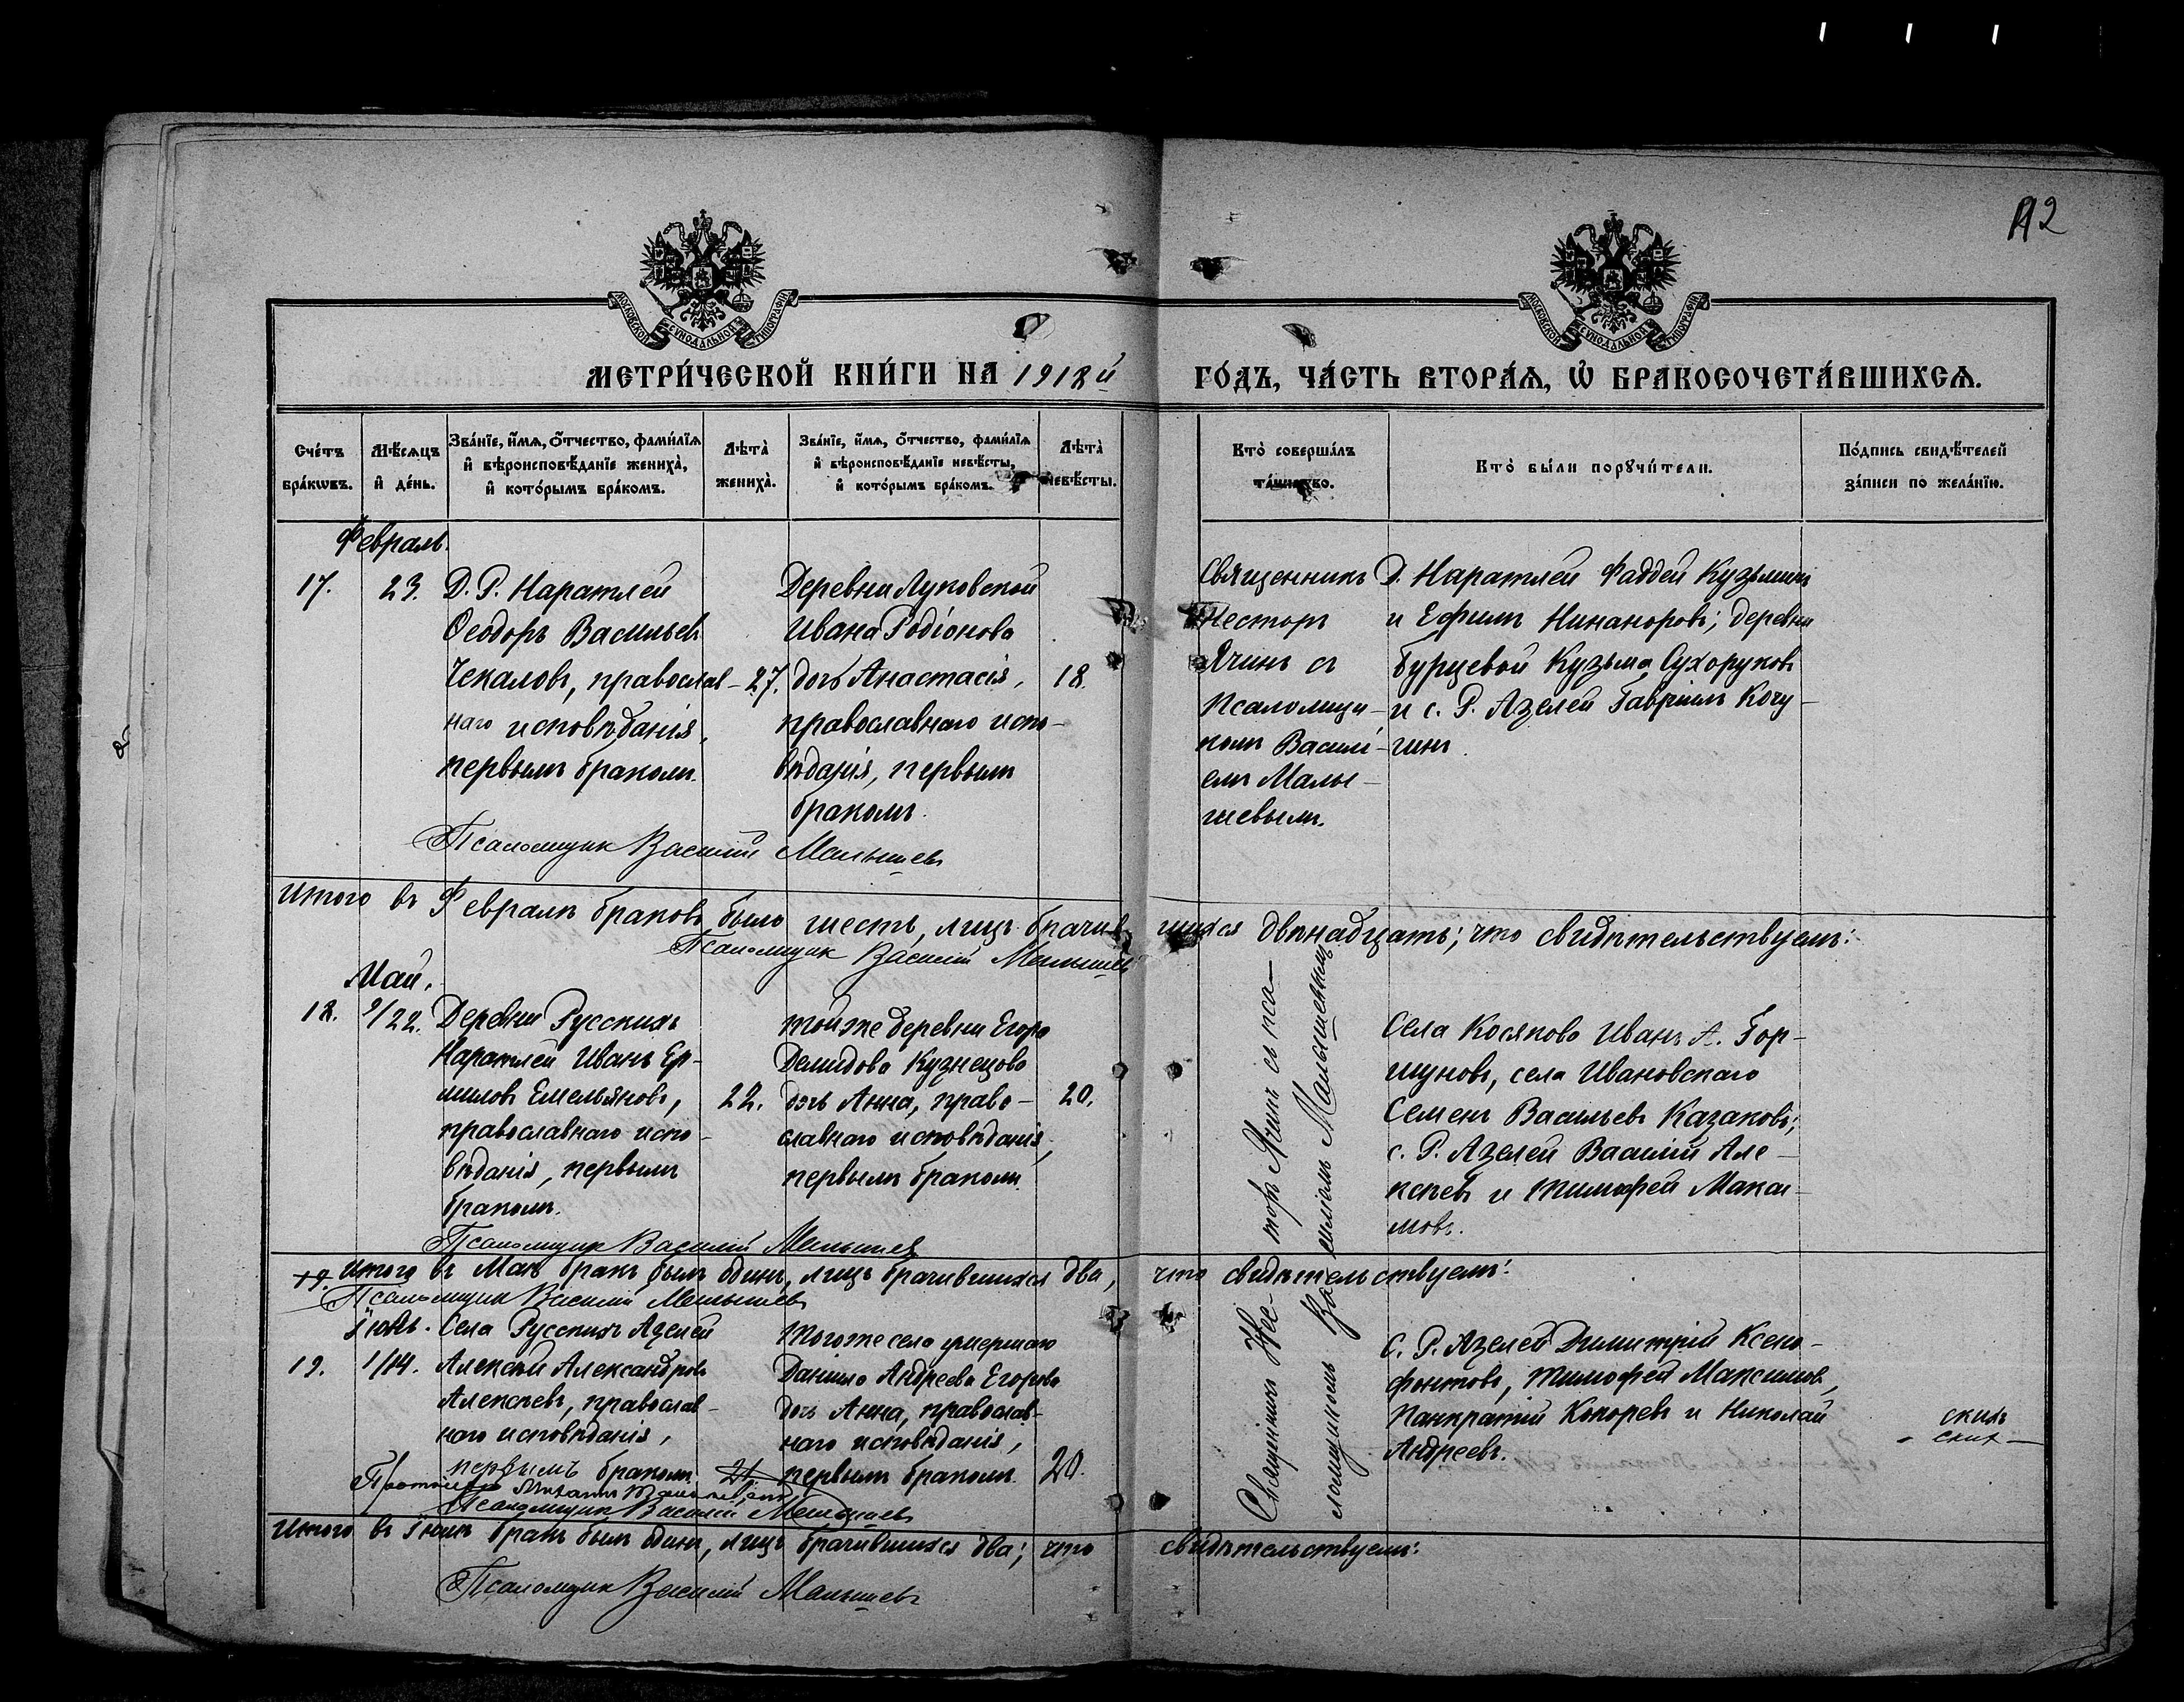 112
МОСКОВСКОЙ СѴНОДАЛЬНОЙ ТИПОГРАФІИ
МОСКОВСКОЙ СѴНОДАЛЬНОЙ ТИПОГРАФІИ
МЕТРИ́ЧЕСКОЙ КНИ́ГИ НА 1918й ГО́ДЪ, ЧА́СТЬ ВТОРА́Ѧ, Ѡ БРАКОСОЧЕТА́ВШИХСѦ.
Сче́тъ бра́кѡвъ.
Мѣ́сѧцъ и҆ де́нь.
Зва́нїе, и҆́мѧ, ѻ҆́тчество, фами́лїѧ
и҆ вѣроисповѣ́данїе жениха̀,
и҆ кото́рымъ бра́комъ.
Лѣта̀ жениха̀.
Зва́нїе, и҆́мѧ, ѻ҆́тчество, фами́лїѧ
и҆ вѣроисповѣ́данїе невѣ́сты,
и҆ кото́рымъ бра́комъ.
Лѣта̀ невѣ́сты.
Кто̀ соверша́лъ та́инство.
Кто̀ бы́ли порꙋчи́тели.
По́дпись свидѣ́телей за́писи по жела́нїю.
Февраль.
17. 23. Д. Р. Наратлей
Ѳеодоръ Васильевъ
Чекаловъ, православ-
наго исповѣданія,
первымъ бракомъ.
27.
Деревни Луковской
Ивана Родіонова
дочь Анастасія,
православнаго испо-
вѣданія, первымъ
бракомъ.
18.
Священникъ
Несторъ
Ячинъ съ
псаломщи-
комъ Василі-
емъ Малы-
шевымъ.
Д. Наратлей Фаддей Кузьминъ
и Ефимъ Никаноровъ; деревни
Бурцевой Кузьма Сухоруковъ
и с. Р. Азелей Гавріилъ Кочу-
гинъ.
Псаломщик Василий Малышевъ
Итого въ Февралѣ браковъ было шесть, лицъ брачив-шихся двѣнадцать; что свидѣтельствуемъ:
Псаломщик Василий Малышевъ
Май.
18. 9/22. Деревни Русскихъ
Наратлей Иванъ Ер-
миловъ Емельяновъ,
православнаго испо-
вѣданія, первымъ
бракомъ.
22.
тойже деревни Егора
Демидова Кузнецова
дочь Анна, право-
славнаго исповѣданія,
первымъ бракомъ.
20.
Священникъ Нес-торъ Ячинъ съ пса-
ломщикомъ Василіемъ Малышевымъ
Села Косяково Иванъ А. Гор-
шуновъ, села Ивановскаго
Семенъ Васильевъ Казаковъ;
с. Р. Азелей Василій Але-
ксѣевъ и Тимофей Макси-
мовъ.
Псаломщик Василий Малышев
19. Итого въ Маѣ бракъ былъ одинъ, лицъ брачившихся два, что свидѣтельствуемъ:
Псаломщик Василий Малышевъ
Іюнь.
19. 1/14. Села Русскихъ Азелей
Алексѣй Александровъ
Алексѣевъ, православ-
наго исповѣданія,
первымъ бракомъ.
21
тогоже села умершаго
Даніила Андреева Егорова
дочь Анна, православ-
наго исповѣданія,
первымъ бракомъ.
20.
С. Р. Азелей Димитрій Ксено-
фонтовъ, Тимофей Максимовъ,
Панкратій Кокоревъ и Николай
Андреевъ.
скихъ
Псаломщик Василий Малышевъ
Итого въ Іюнѣ бракъ былъ одинъ, лицъ брачившихся два; что свидѣтельствуемъ:
Псаломщик Василий Малышевъ